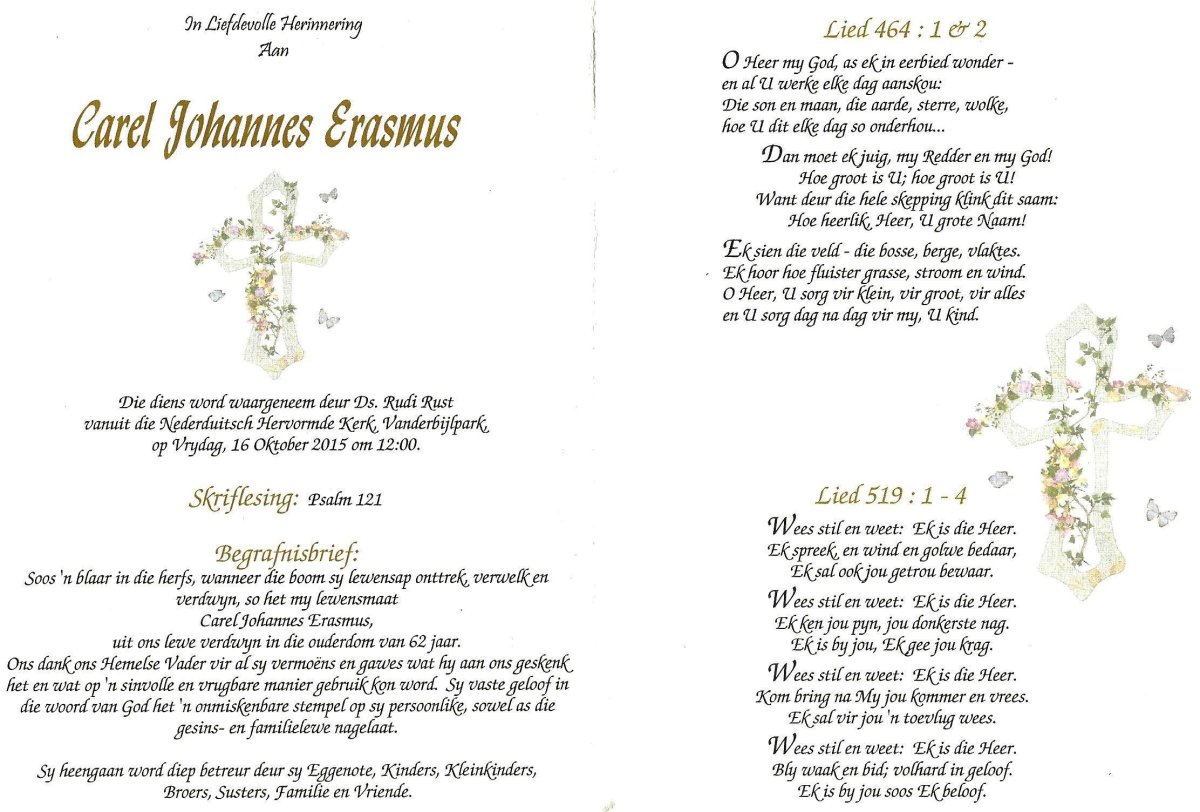 In Liefdevolle Herinnering
Aan
Carel Johannes Erasmus
Die diens word waargeneem deur Ds. Rudi Rust
vanuit die Nederduitsch Hervormde Kerk, Vanderbijlpark,
op Vrydag, 16 Oktober 2015 om 12:00.
Skriflesing: Psalm 121
Begrafnisbrief:
Soos 'n blaar in die herfs, wanneer die boom sy lewensap onttrek, verwelk en
verdwyn, so het my lewensmaat
Carel Johannes Erasmus,
uit ons lewe verdwyn in die ouderdom van 62 jaar.
Ons dank ons Hemelse Vader vir al sy vermoëns en gawes wat hy aan ons geskenk
het en wat op 'n sinvolle en vrugbare manier gebruik kon word. Sy vaste geloof in
die woord van God het 'n onmiskenbare stempel op sy persoonlike, sowel as die
gesins- en familielewe nagelaat.
Sy heengaan word diep betreur deur sy Eggenote, Kinders, Kleinkinders,
Broers, Susters, Familie en Vriende.
Lied 464 : 1 & 2
O Heer my God, as ek in eerbied wonder -
en al U werke elke dag aanskou:
Die son en maan, die aarde, sterre, wolke,
hoe U dit elke dag so onderhou...
Dan moet ek juig, my Redder en my God!
Hoe groot is U; hoe groot is U!
Want deur die hele skepping klink dit saam:
Hoe heerlik, Heer, U grote Naam!
Ek sien die veld - die bosse, berge, vlaktes.
Ek hoor hoe fluister grasse, stroom en wind.
O Heer, U sorg vir klein, vir groot, vir alles
en U sorg dag na dag vir my, U kind.
Lied 519 : 1 - 4
Wees stil en weet: Ek is die Heer.
Ek spreek, en wind en golwe bedaar,
Ek sal ook jou getrou bewaar.
Wees stil en weet: Ek is die Heer.
Ek ken jou pyn, jou donkerste nag.
Ek is by jou, Ek gee jou krag.
Wees stil en weet: Ek is die Heer.
Kom bring na My jou kommer en vrees.
Ek sal vir jou 'n toevlug wees.
Wees stil en weet: Ek is die Heer.
Bly waak en bid; volhard in geloof.
Ek is by jou soos Ek beloof.